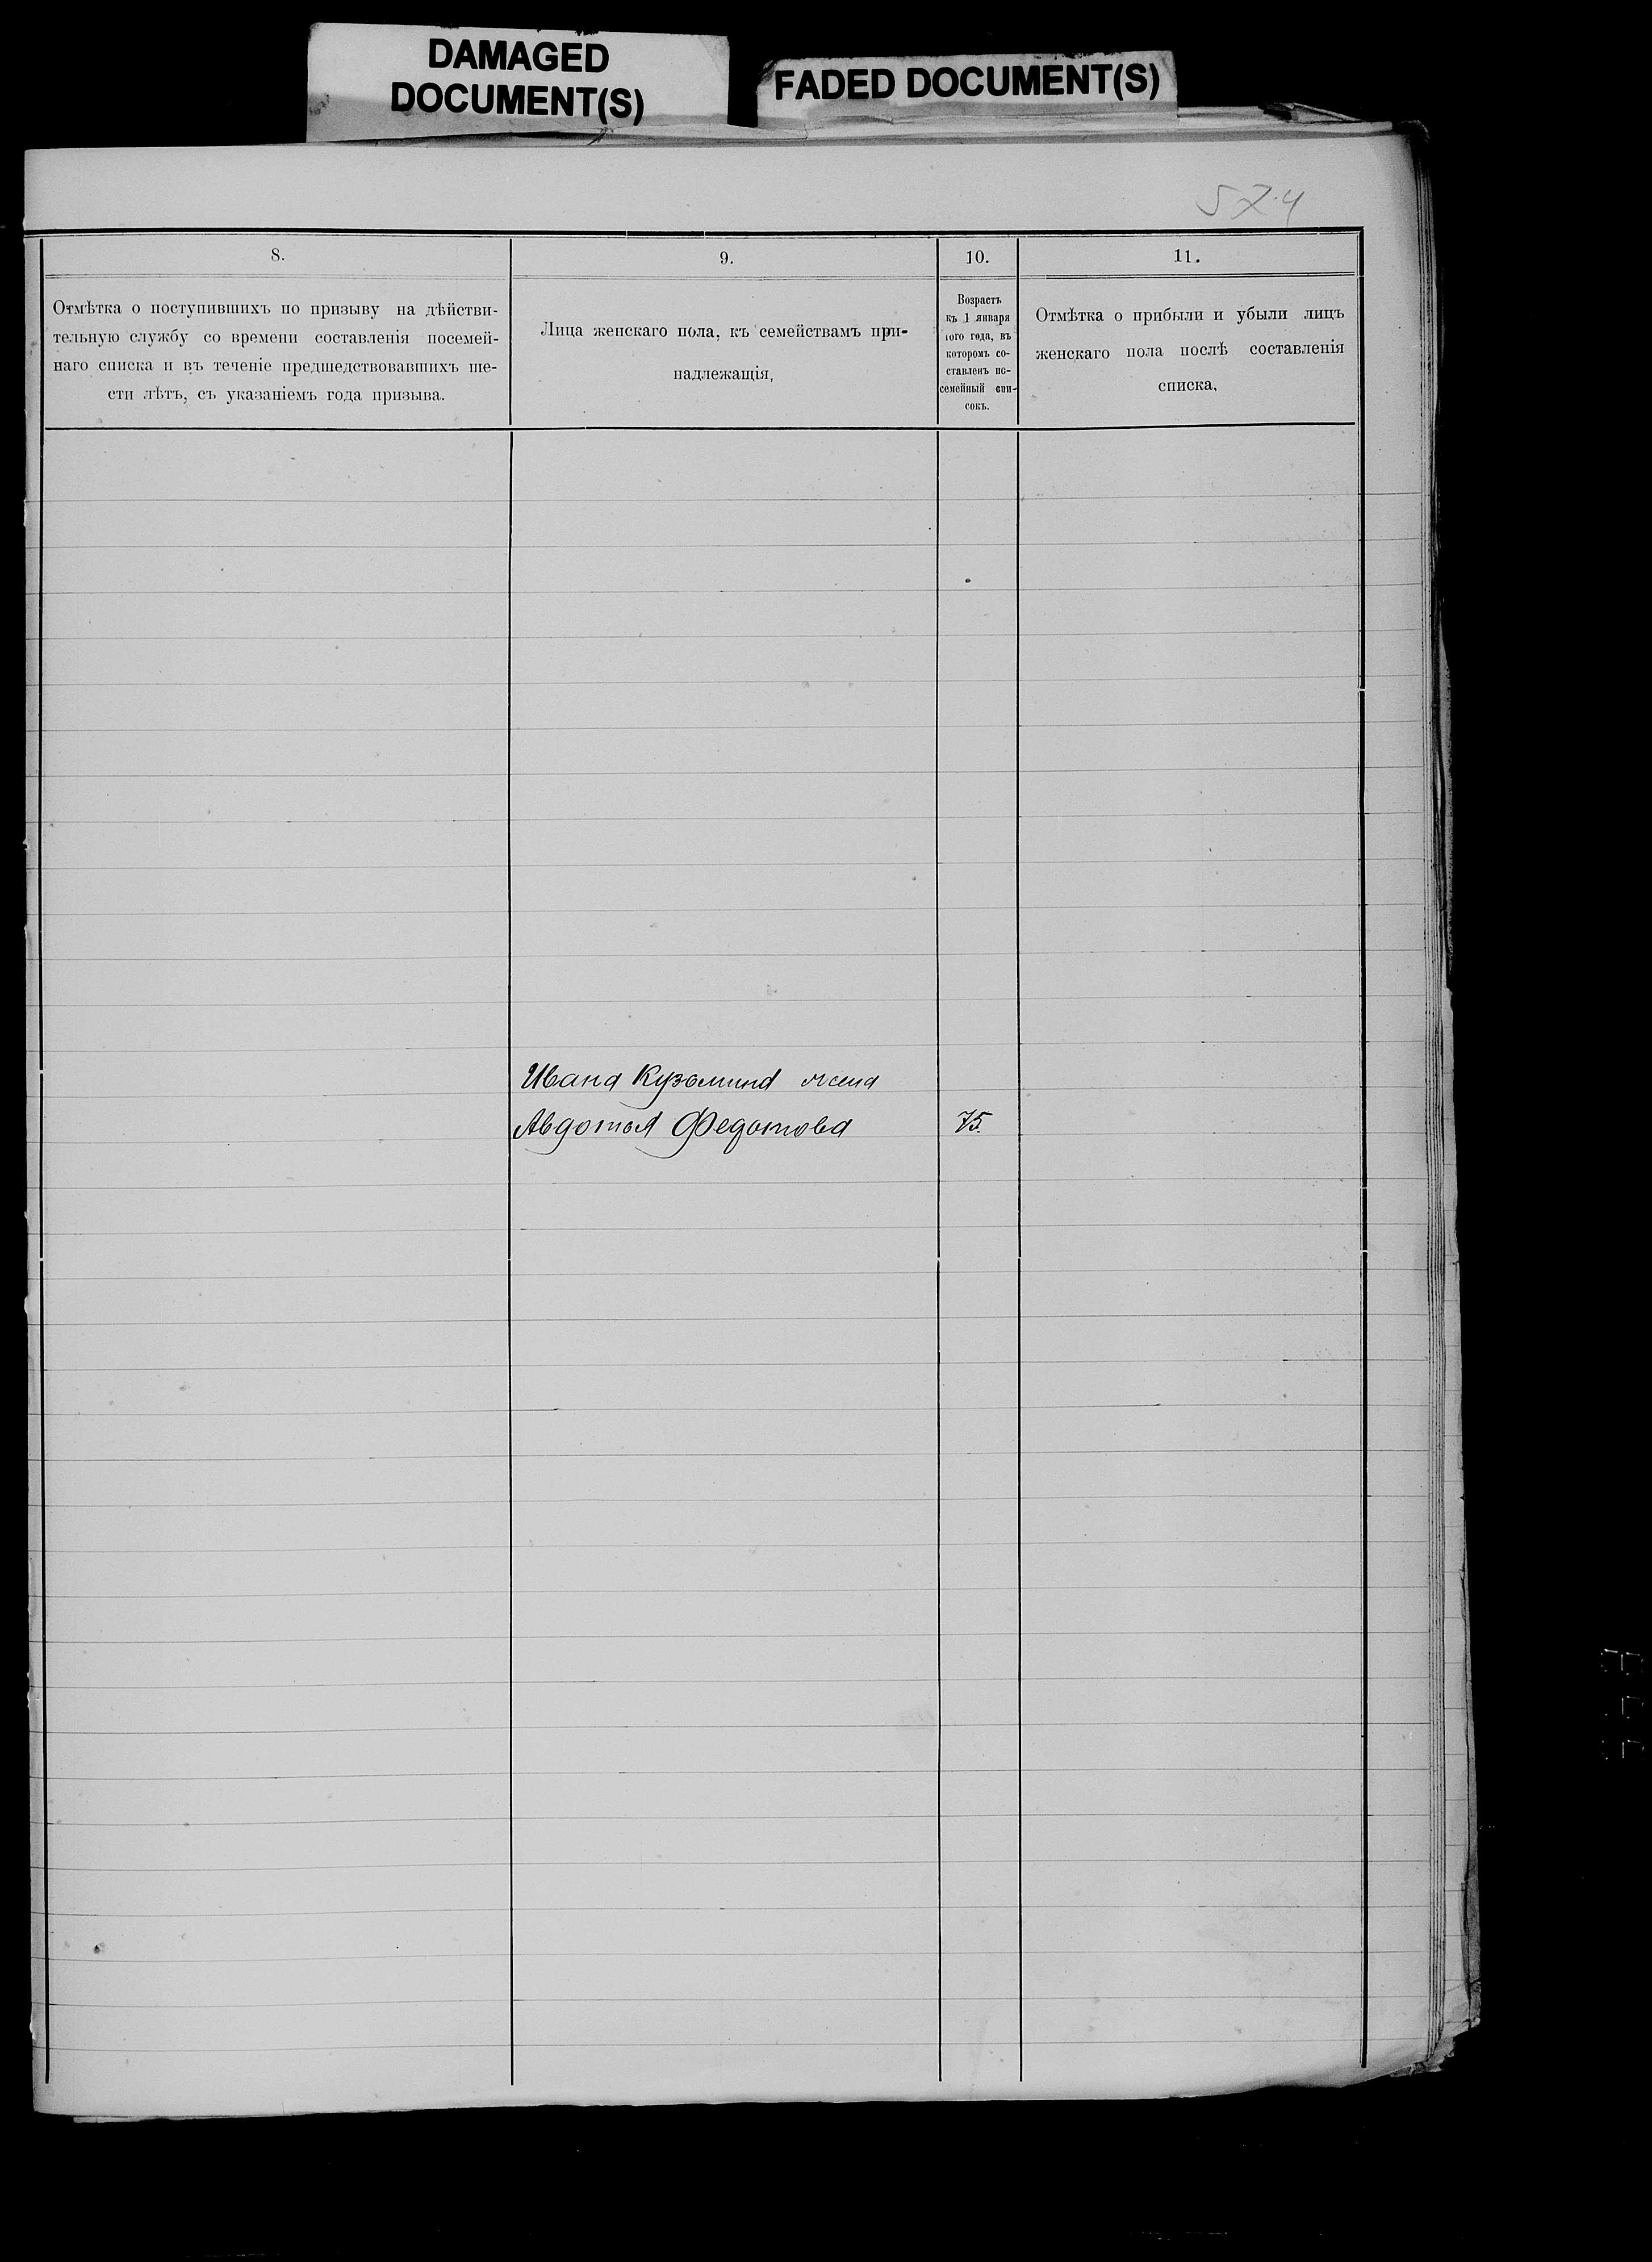 DAMAGED
DOCUMENT(S)
FADED DOCUMENT(S)
574
8.
Отмѣтка о поступившихъ по призыву на дѣйстви-
тельную службу со времени составленія посемей-
наго списка и въ теченіе предшедствовавшихъ ше-
сти лѣтъ, съ указаніемъ года призыва.
9.
Лица женскаго пола, къ семействамъ при-
надлежащія,
10.
Возрастъ
къ 1 января
того года, въ
которомъ со-
ставленъ по-
семейный спи-
сокъ.
11.
Отмѣтка о прибыли и убыли лицъ
женскаго пола послѣ составленія
списка.
Ивана Кузьмина жена
Авдотья Федотова 75.